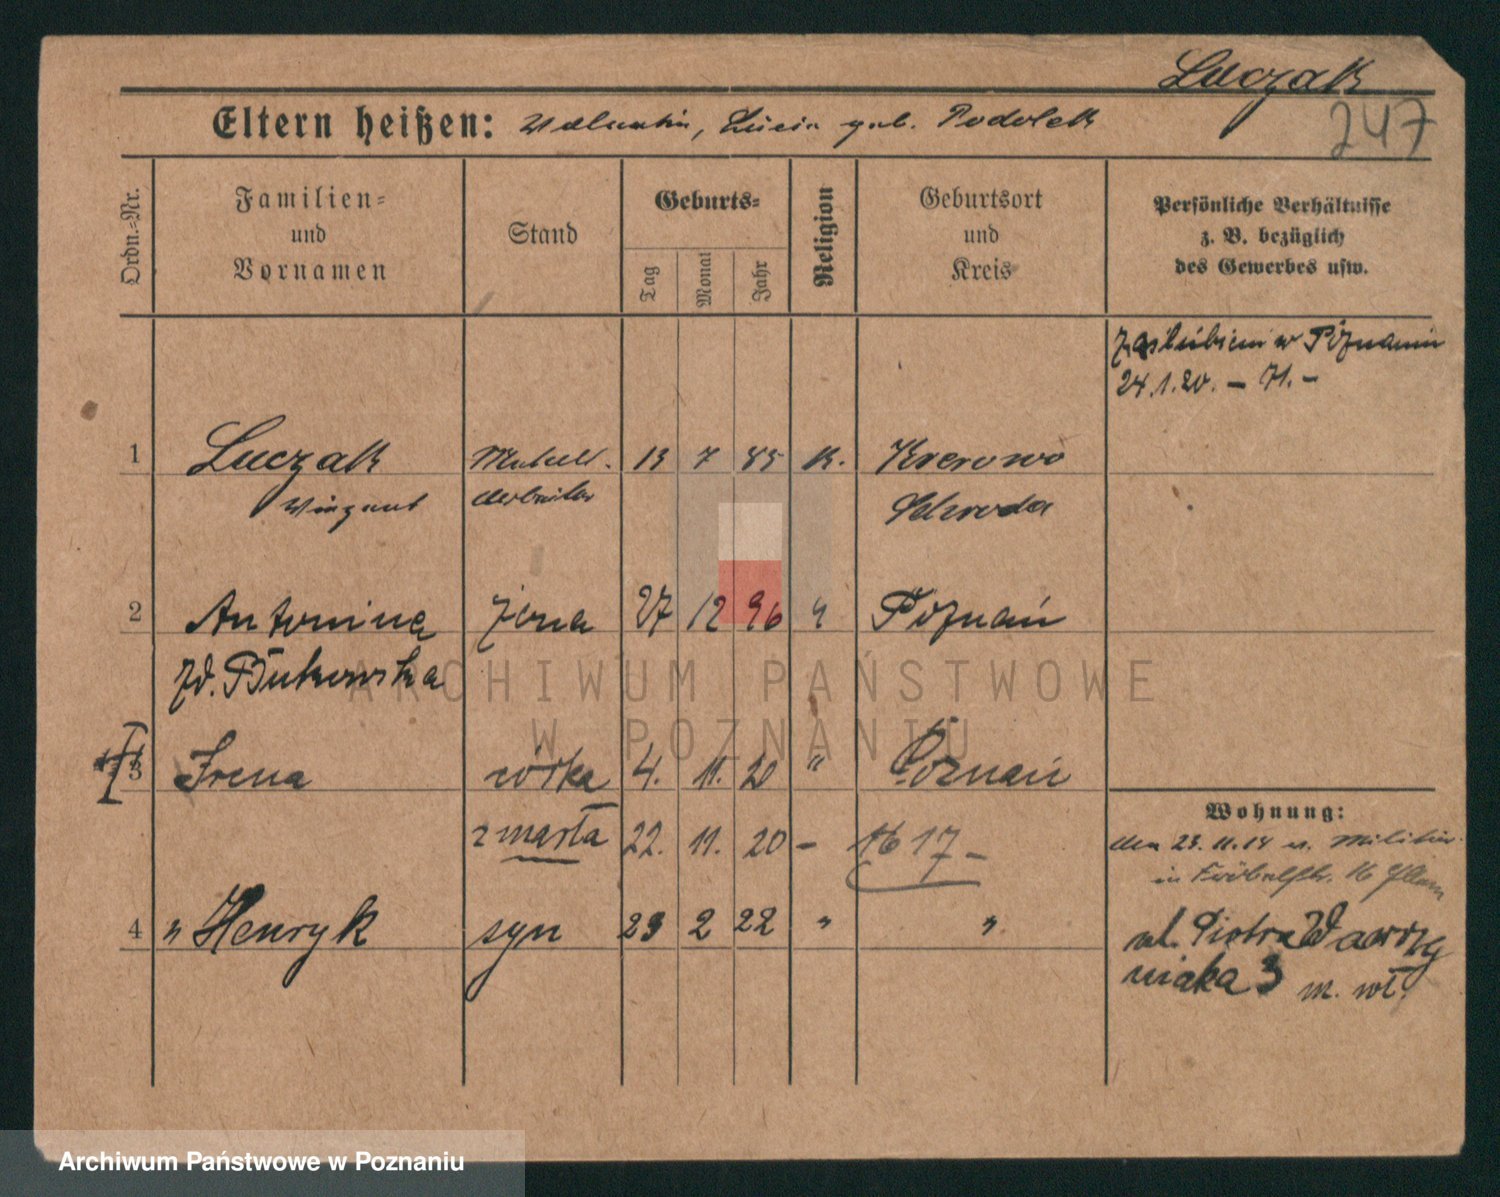 Luczak
247
Eltern heißen: Valentin, Lucia geb. Podolek
Ordn.-Nr.
Familien-
und
Vornamen
Stand
Geburts-
Tag
Monat
Jahr
Religion
Geburtsort
und
Kreis
Persönliche Verhältnisse
z. B. bezüglich
des Gewerbes usw.
zaślubieni w Poznaniu
24.1.20. – 71. –
1 Luczak 13 7 85 K. Krerowo
Vinzent arbeiter Schroda
2 Antonina żona 27 12 96 " Poznań
zd. Bukowska
3 Irena córka 4. 11. 20 " Poznań
zmarła 22. 11. 20 – 1617 –
4 " Henryk syn 23 2 22 " "
Wohnung:
den 23.11.14 v. Militär
in Fröbelstr. 16
ul. Piotra Wawrzy
niaka 3 m. wł.
ARCHIWUM PAŃSTWOWE
W POZNANIU
Archiwum Państwowe w Poznaniu